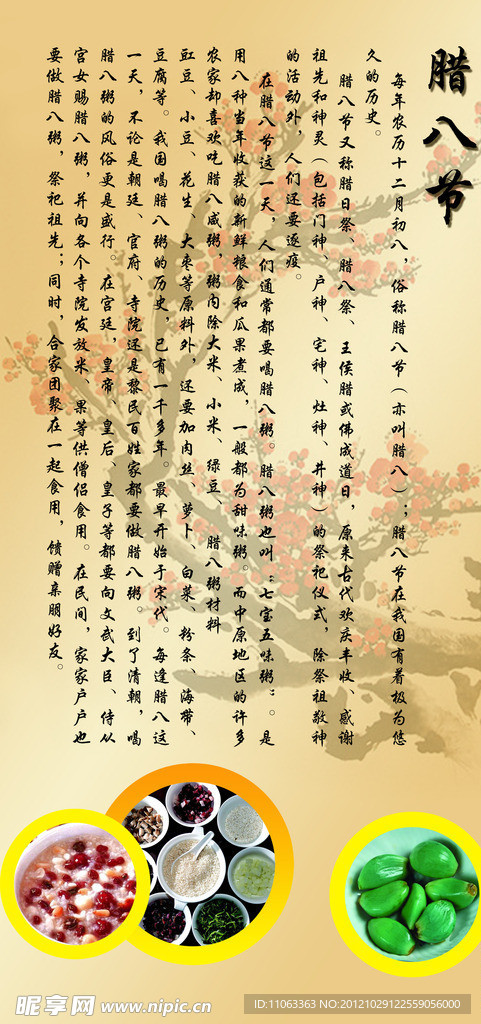 腊八节
每年农历十二月初八，俗称腊八节（亦叫腊八）；腊八节在我国有着极为悠
久的历史。
腊八节又称腊日祭、腊八祭、王侯腊或佛成道日，原来古代欢庆丰收、感谢
祖先和神灵（包括门神、户神、宅神、灶神、井神）的祭祀仪式，除祭祖敬神
的活动外，人们还要逐疫。
在腊八节这一天，人们通常都要喝腊八粥。腊八粥也叫“七宝五味粥”。是
用八种当年收获的新鲜粮食和瓜果煮成，一般都为甜味粥。而中原地区的许多
农家却喜欢吃腊八咸粥，粥内除大米、小米、绿豆、 腊八粥材料
豇豆、小豆、花生、大枣等原料外，还要加肉丝、萝卜、白菜、粉条、海带、
豆腐等。我国喝腊八粥的历史，已有一千多年。最早开始于宋代。每逢腊八这
一天，不论是朝廷、官府、寺院还是黎民百姓家都要做腊八粥。到了清朝，喝
腊八粥的风俗更是盛行。在宫廷，皇帝、皇后、皇子等都要向文武大臣、侍从
宫女赐腊八粥，并向各个寺院发放米、果等供僧侣食用。在民间，家家户户也
要做腊八粥，祭祀祖先；同时，合家团聚在一起食用，馈赠亲朋好友。
昵享网 www.nipic.cn
ID:11063363 NO:20121029122559056000